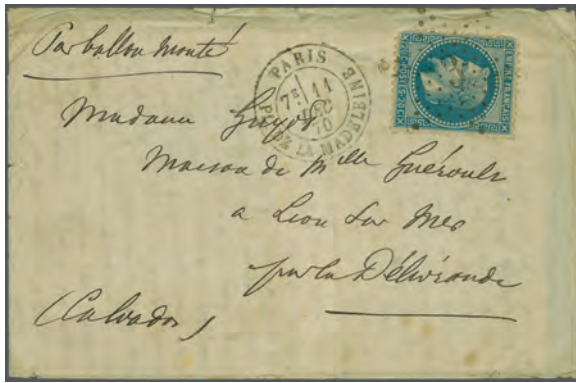 Par ballon monté
PARIS
7E 11
DEC
70
PL. DE LA MADELEINE
EMPIRE FRANÇAIS
Madame
Maison de Mlle Guéroult
a Lion Sur Mer
par la Délivrande
(Calvados)